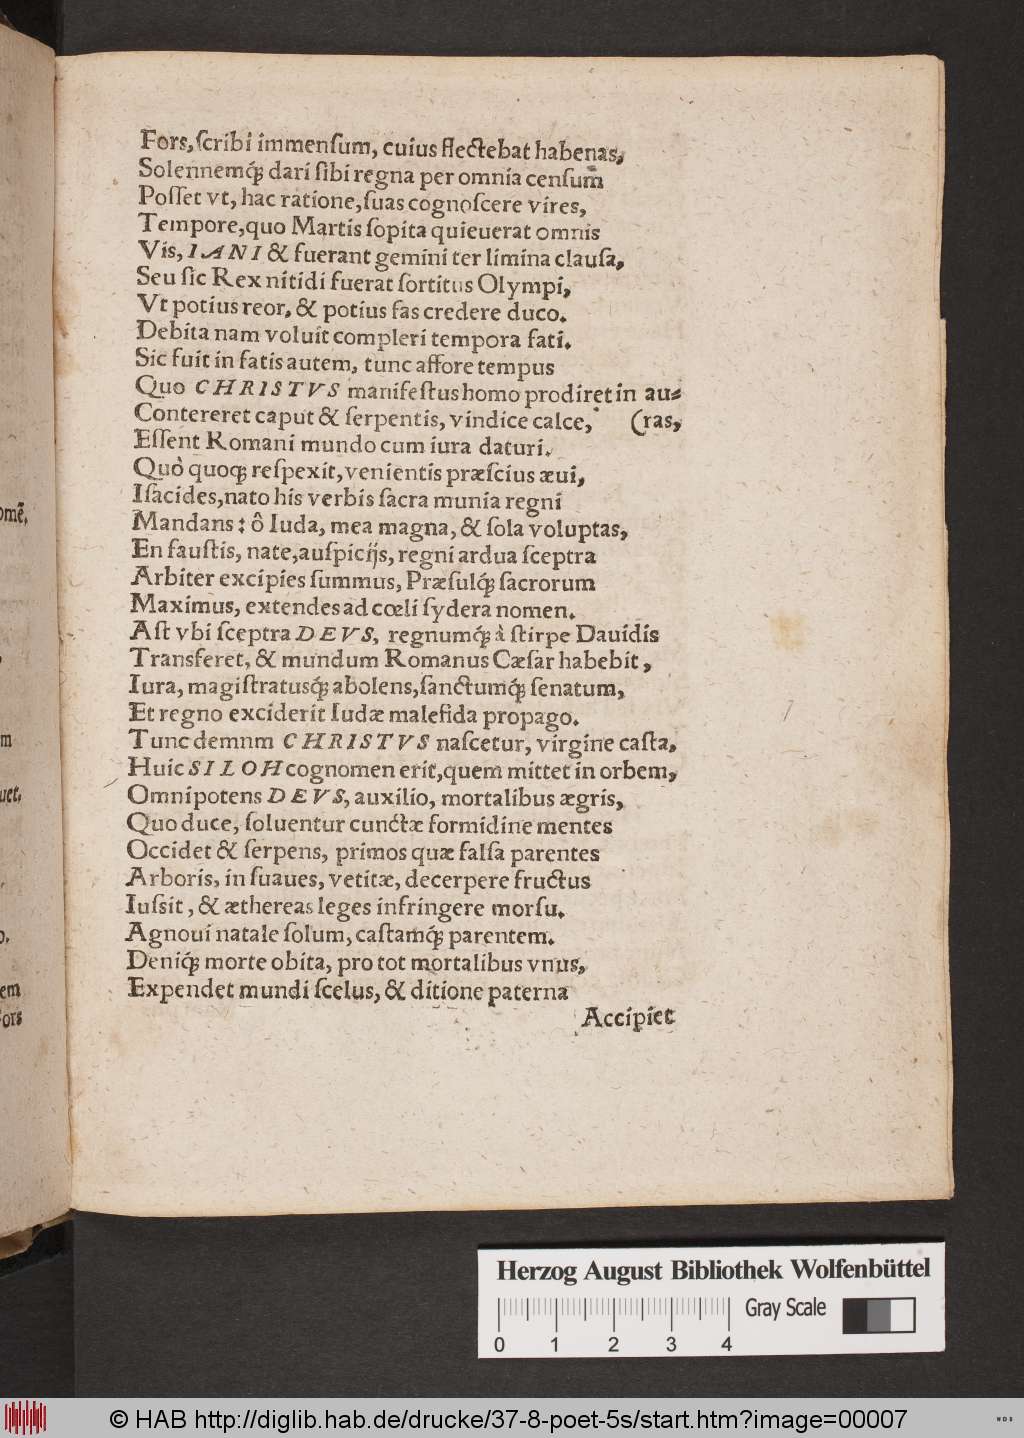 Fors, ſcribi immenſum, cuius flectebat habenas,
Solennemq́; dari ſibi regna per omnia cenſum
Poſſet vt, hac ratione, ſuas cognoſcere vires,
Tempore, quo Martis ſopita quieuerat omnis
Vis, IANI & fuerant gemini ter limina clauſa,
Seu ſic Rex nitidi fuerat ſortitus Olympi,
Vt potius reor, & potius fas credere duco.
Debita nam voluit compleri tempora fati.
Sic fuit in fatis autem, tunc affore tempus
Quo CHRISTVS manifeſtus homo prodiret in au⸗
Contereret caput & ſerpentis, vindice calce, (ras,
Eſſent Romani mundo cum iura daturi.
Quò quoq; reſpexit, venientis præſcius æui,
Iſacides, nato his verbis ſacra munia regni
Mandans: ô Iuda, mea magna, & ſola voluptas,
En fauſtis, nate, auſpicijs, regni ardua ſceptra
Arbiter excipies ſummus, Præſulq́; ſacrorum
Maximus, extendes ad cœli ſydera nomen.
Aſt vbi ſceptra DEVS, regnumq́; à ſtirpe Dauidis
Transferet, & mundum Romanus Cæſar habebit,
Iura, magiſtratusq́; abolens, ſanctumq́; ſenatum,
Et regno exciderit Iudæ malefida propago.
Tunc demnm CHRISTVS naſcetur, virgine caſta,
Huic SILOH cognomen erit, quem mittet in orbem,
Omnipotens DEVS, auxilio, mortalibus ægris,
Quo duce, ſoluentur cunctæ formidine mentes
Occidet & ſerpens, primos quæ falſa parentes
Arboris, in ſuaues, vetitæ, decerpere fructus
Iuſsit, & æthereas leges infringere morſu.
Agnoui natale ſolum, caſtamq́; parentem.
Deniq́; morte obita, pro tot mortalibus vnus,
Expendet mundi ſcelus, & ditione paterna
Accipiet
omẽ,
m
uet,
o.
em
Fors
Herzog August Bibliothek Wolfenbüttel
Gray Scale
0 1 2 3 4
© HAB http://diglib.hab.de/drucke/37-8-poet-5s/start.htm?image=00007